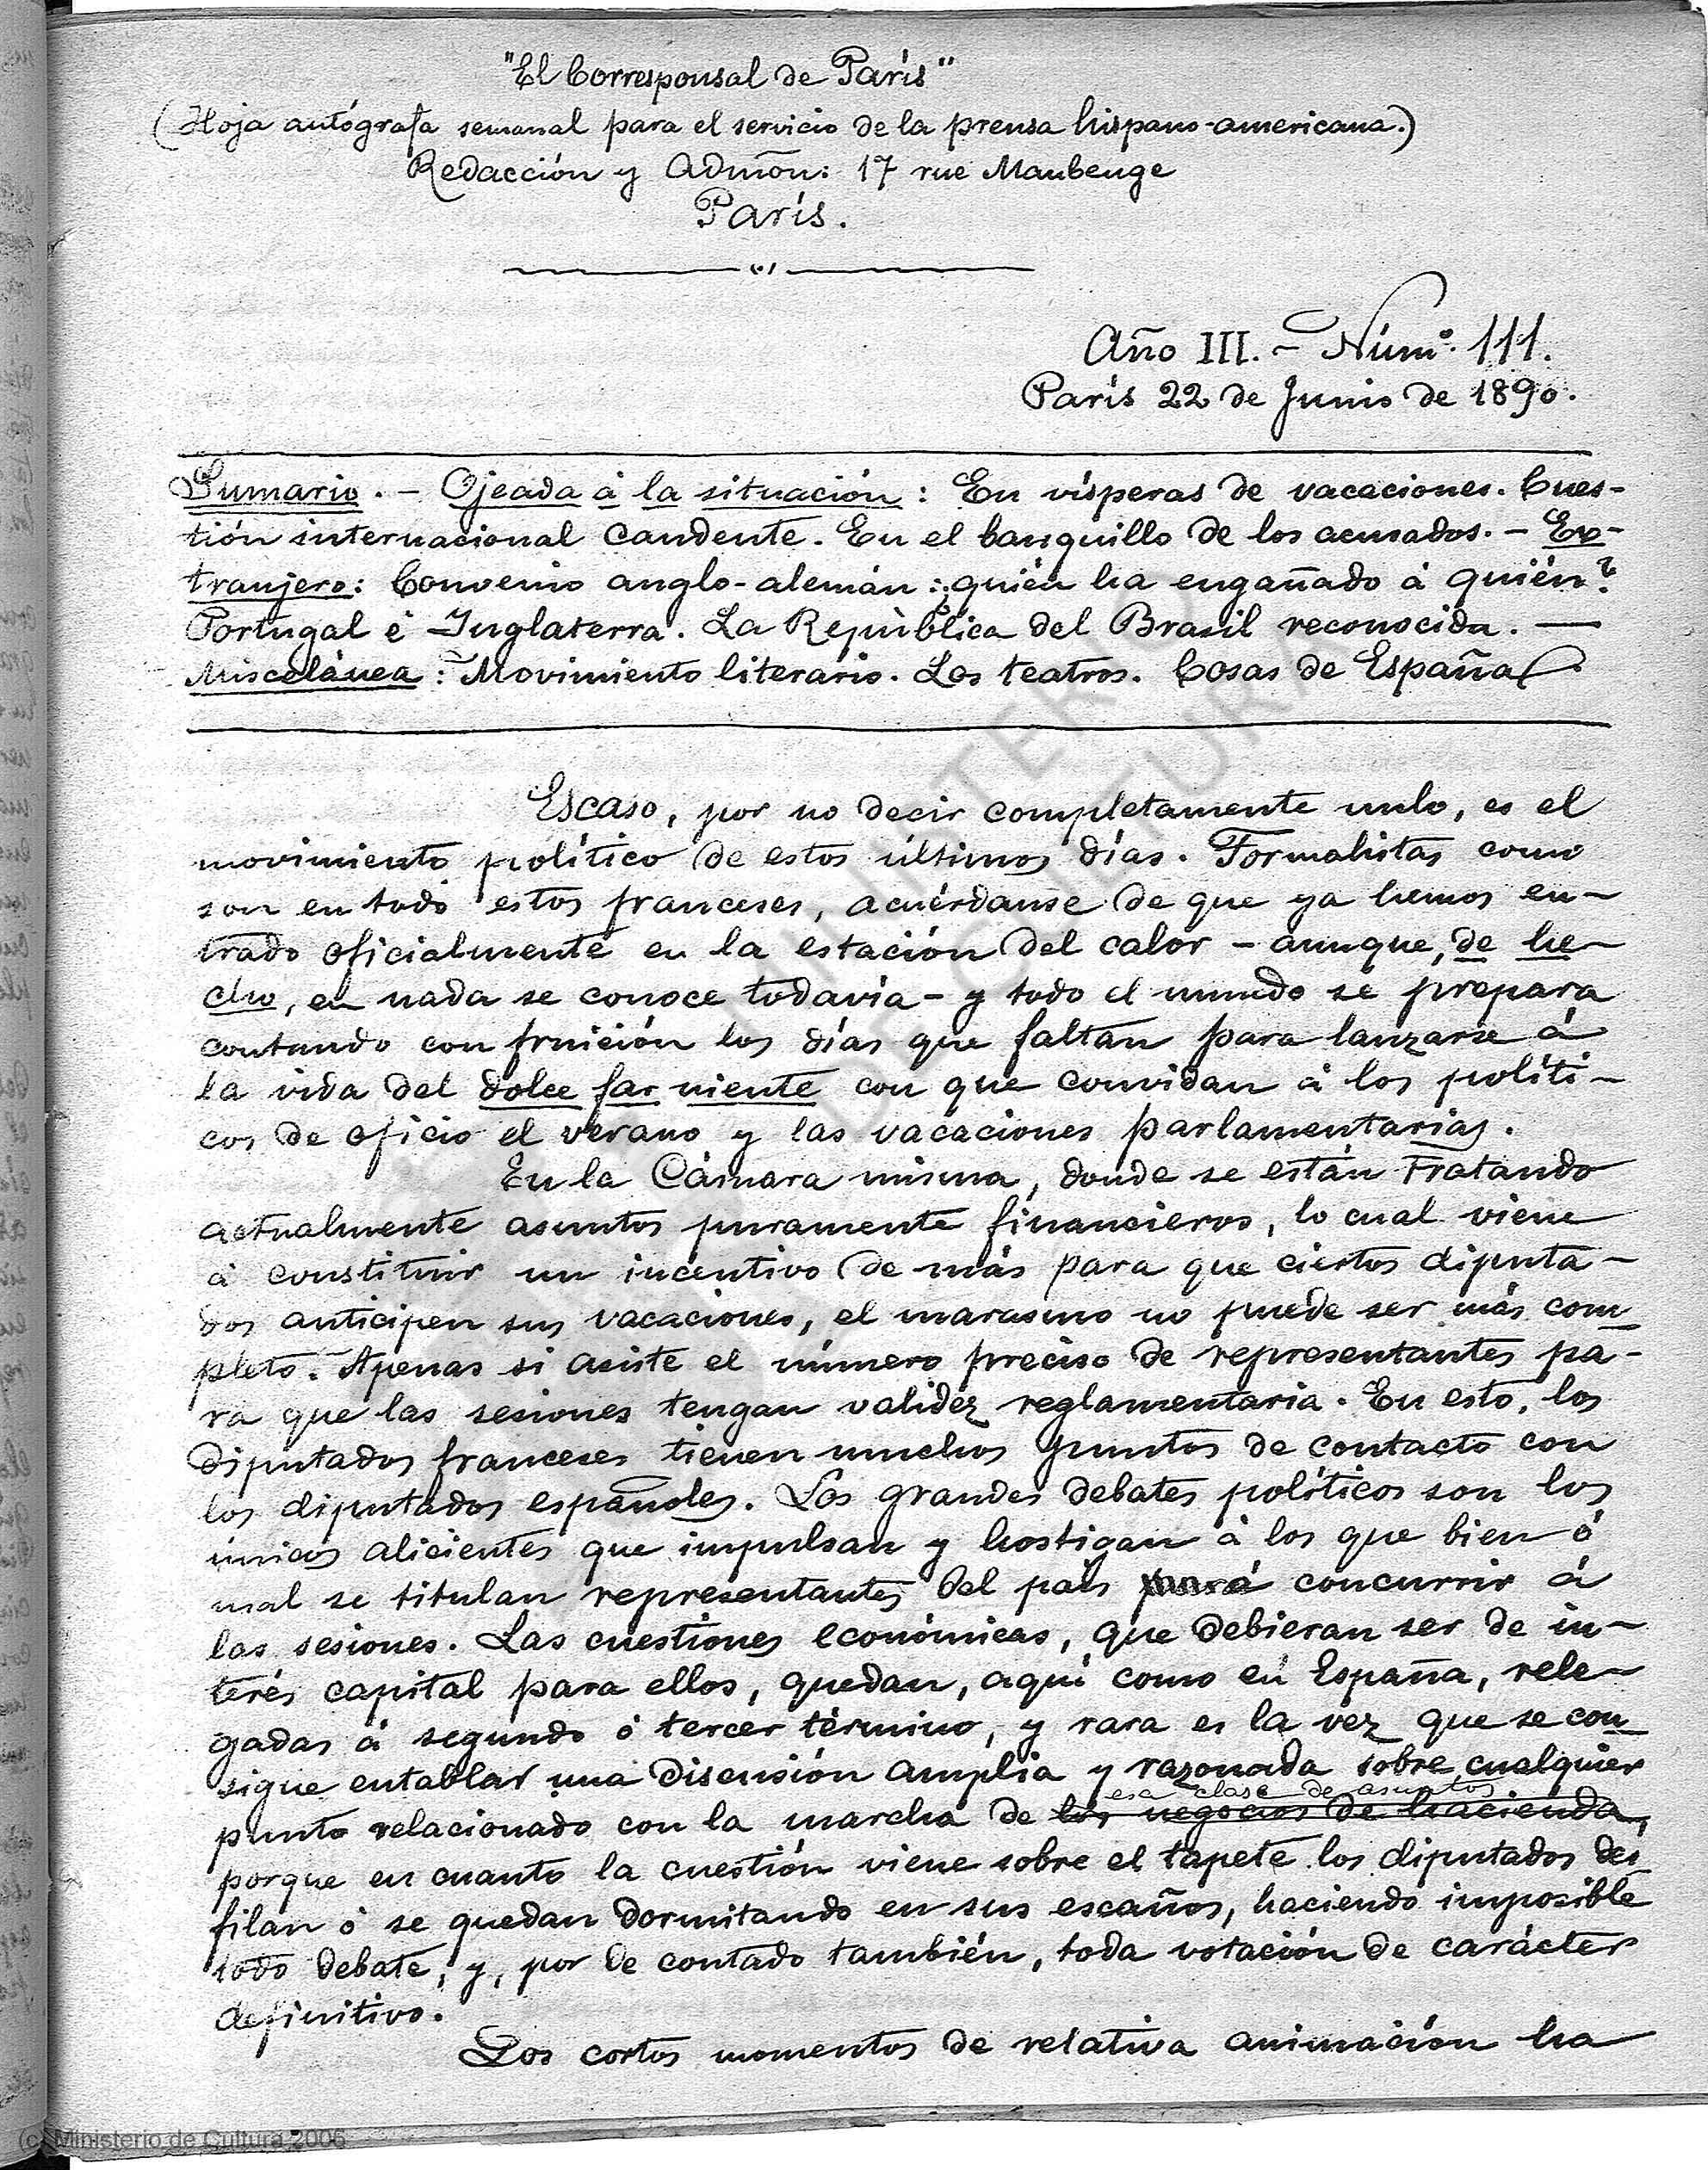 "El Corresponsal de París"
(Hoja autógrafa semanal para el servicio de la prensa hispano-americana.)
Redacción y Admōn: 17 rue Maubeuge
París.
Año III. – Núm.º 111.
París 22 de Junio de 1890.
Sumario. – Ojeada á la situación: En vísperas de vacaciones. Cues-
tión internacional candente. En el banquillo de los acusados. – Ex-
tranjero: Convenio anglo-alemán: ¿quién ha engañado á quién?
Portugal é Inglaterra. La República del Brasil reconocida. —
Miscelánea: Movimiento literario. Los teatros. Cosas de España.
Escaso, por no decir completamente nulo, es el
movimiento político de estos últimos días. Formalistas como
son en todo estos franceses, acuérdanse de que ya hemos en-
trado oficialmente en la estación del calor – aunque, de he-
cho, en nada se conoce todavía – y todo el mundo se prepara
contando con fruición los días que faltan para lanzarse á
la vida del dolce far niente con que convidan á los políti-
cos de oficio el verano y las vacaciones parlamentarias.
En la Cámara misma, donde se están tratando
actualmente asuntos puramente financieros, lo cual viene
á constituir un incentivo de más para que ciertos diputa-
dos anticipen sus vacaciones, el marasmo no puede ser más com
pleto. Apenas si asiste el número preciso de representantes pa-
ra que las sesiones tengan validez reglamentaria. En esto, los
diputados franceses tienen muchos puntos de contacto con
los diputados españoles. Los grandes debates políticos son los
únicos alicientes que impulsan y hostigan á los que bien ó
mal se titulan representantes del país para concurrir á
las sesiones. Las cuestiones económicas, que debieran ser de in-
terés capital para ellos, quedan, aquí como en España, rele-
gadas á segundo ó tercer término, y rara es la vez que se con
sigue entablar una discusión amplia y razonada sobre cualquier
esa clase de asuntos
punto relacionado con la marcha de los negocios de hacienda,
porque en cuanto la cuestión viene sobre el tapete los diputados des
filan ó se quedan dormitando en sus escaños, haciendo imposible
todo debate, y, por de contado también, toda votación de carácter
definitivo.
Los cortos momentos de relativa animación ha
(c) Ministerio de Cultura 2006
MINISTERIO
DE CULTURA